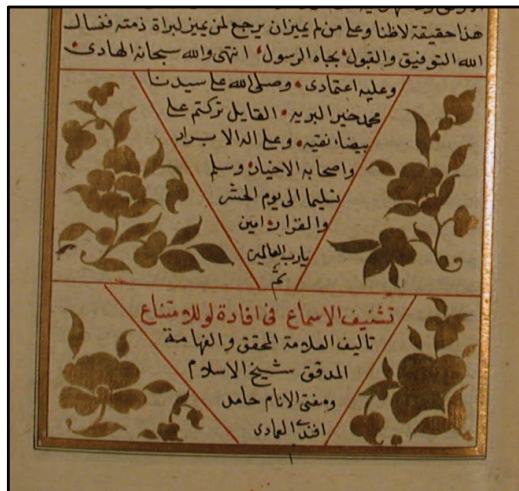 هذا حقيقة لاظنا وعلى من لم يميزان يرجع لمن يميز لبراة ذمته فنسال
الله التوفيق والقبول بجاه الرسول انتهى والله سبحانه الهادى
وعليه اعتمادى وصلى الله على سيدنا
محمد خير البريه القايل تركتم على
بيضا نقيه وعلى اله الابرار
واصحابه الاخيار وسلم
تسليما الى يوم الحشر
والقرار امين
يارب العالمين
تم
تشنيف الاسماع فى افادة لو للامتناع
تاليف العلامة المحقق والفهامة
المدقق شيخ الاسلام
ومفتى الانام حامد
افندى العمادى